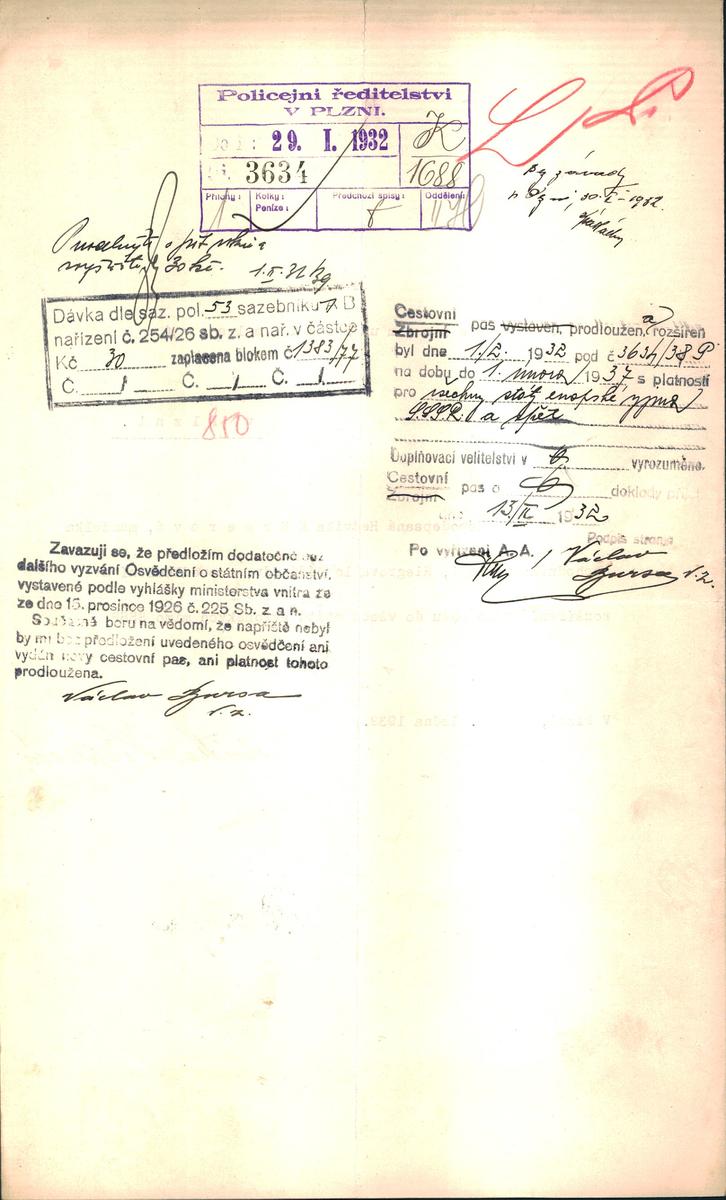 Policejní ředitelství
V PLZNI.
Došlo: 29. I. 1932
K
Čís. 3634
1688
Přílohy:
Kolky:
Peníze:
Předchozí spisy:
Oddělení:
Bez závady
30.I.1932.
30 Kč.
1.II.32
Dávka dle saz. pol. 53 sazebníku B
nařízení č. 254/26 sb. z. a nař. v částce
Kč 30 zaplacena blokem č. 1383/77
Č. / Č. / Č. /
810
Cestovní
Zbrojní pas vystaven, prodloužen, a rozšířen
byl dne 1./2. 1932 pod č 3634/38 P
na dobu do 1. února 1937 s platností
pro všechny státy evropské vyjma
S.S.S.R. a zpět
Doplňovací velitelství v vyrozuměno.
Cestovní
Zbrojní pas a doklady
dne 13/II 1932
Podpis strany:
Po vyřízení A. A. Václav
Bursa v. z.
Zavazuji se, že předložím dodatečně bez
dalšího vyzvání Osvědčení o státním občanství,
vystavené podle vyhlášky ministerstva vnitra ze
ze dno 15. prosince 1926 č. 225 Sb. z. a n.
Současně beru na vědomí, že napříště nebyl
by mi bez předložení uvedeného osvědčení ani
vydán nový cestovní pas, ani platnost tohoto
prodloužena.
Václav Bursa
v. z.